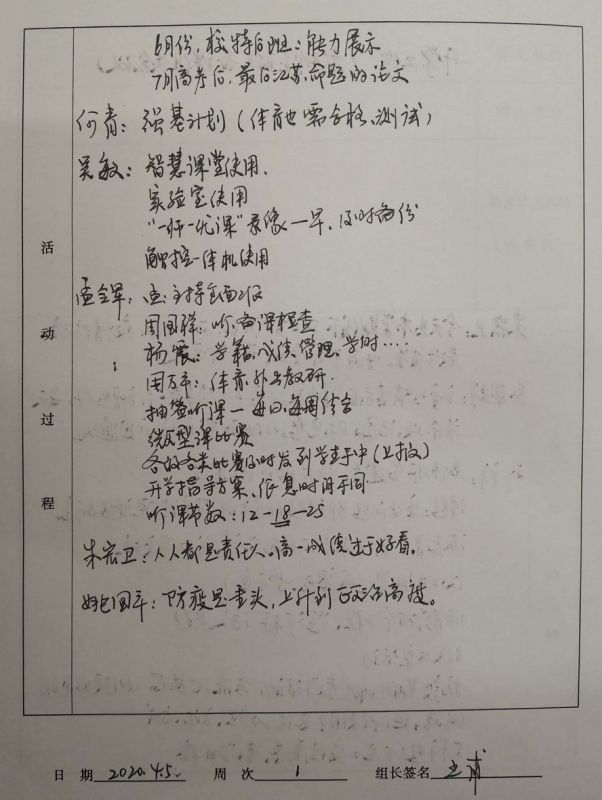 6月份,校特后班:能力展示
7月高考后,最后江苏命题的论文
何青:强基计划(体育也需合格、测试)
吴敏:智慧课堂使用、
实验室使用
"一师一优课"录像一早,及时备份
触控一体机使用
孟全军: 主持全面工作
周国祥:听、备课检查
杨震:学籍、成绩管理、学时…
周万平:体育、外出教研.
抽签听课—每日、每周结合
微型课比赛
各级各类比赛及时发到学生手中(上报)
开学指导方案、作息时间不同
听课节数:12-18-25
朱宏卫:人人都是责任人。高一成绩过于好看。
姚国平:防疫是重头,上升到政治高度。
活
动
过
程
日 期 2020.4.5. 周 次 1 组长签名